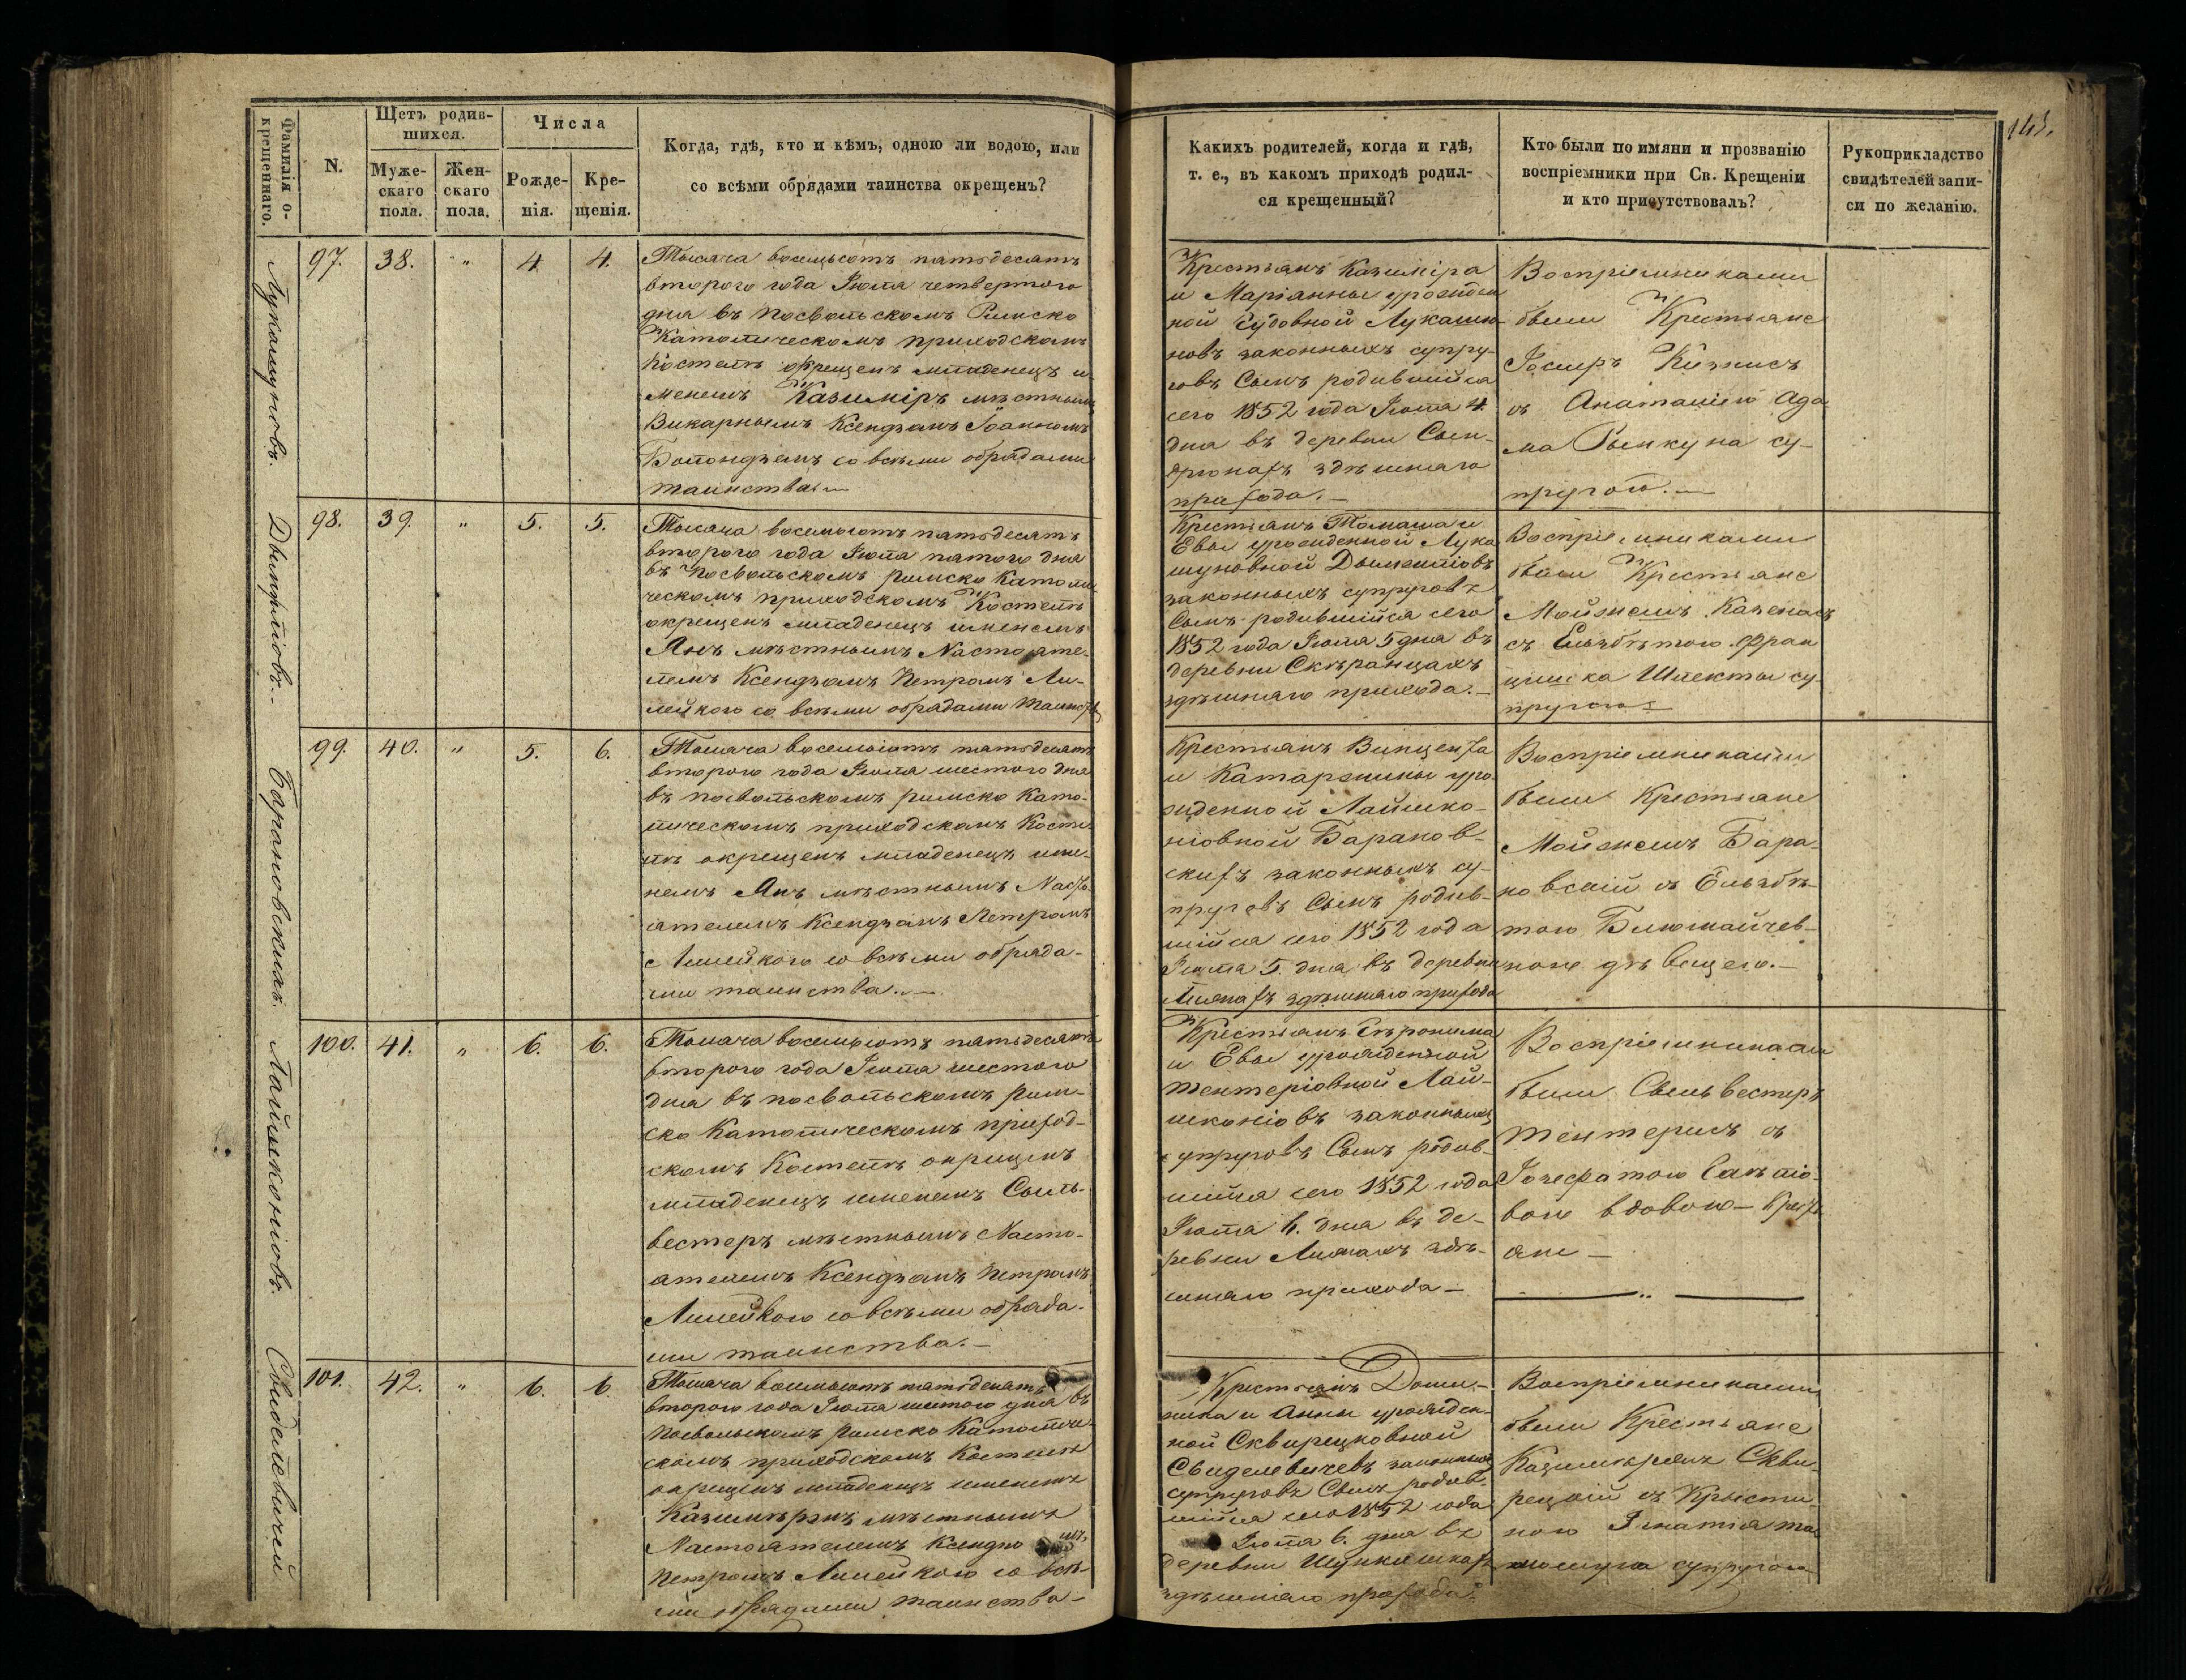 Фамилія о-
крещеннаго.
N.
Щетъ родив-
шихся.
Муже-
скаго
пола.
Жен-
скаго
пола.
Числа
Рожде-
нія.
Кре-
щенія.
Когда, гдѣ, кто и кѣмъ, одною ли водою, или
со всѣми обрядами таинства окрещенъ?
Каких​ъ родителей, когда и гдѣ,
т. е., въ какомъ приходѣ родил-
ся крещенный?
Кто были по имяни и прозванію
воспріемники при Св. Крещеніи
и кто присутствовалъ?
Рукоприкладство
свидѣтелей запи-
си по желанію.
145.
Лукашуновъ.
97. 38. " 4 4.
Тысяча восемьсотъ пятьдесятъ
втораго года Іюля четвертого
дня въ Посвольскомъ Римско
Католическомъ приходскомъ
Костелѣ окрещенъ младенецъ и-
менемъ Казиміръ мѣстнымъ
Викарнымъ Ксендзомъ Іоанномъ
со всѣми обрядами
таинства.
Крестьянъ Казиміра
и Маріанны урожден
ной Лукашу-
новъ законныхъ супру-
говъ Сынъ родившійся
сего 1852 года Іюля 4
дня въ деревни
здѣшняго
прихода.
Воспріемниками
были Крестьяне
съ Ада
ма су-
пругою.
98. 39. " 5. 5.
Тысяча восемьсотъ пятьдесятъ
втораго года Іюля пятого дня
въ Посвольскомъ римско Католи
ческомъ приходскомъ Костелѣ
окрещенъ младенецъ именемъ
Янъ мѣстнымъ Настояте-
лемъ Ксендзомъ Петромъ Ли-
нейкою со всѣми обрядами Таинств
Крестьянъ Томаша и
Евы урожденной Лука
шуновной
законныхъ супруговъ
Сынъ родившійся сего
1852 года Іюля 5 дня въ
деревни
здѣшняго прихода.
Воспріемниками
были Крестьяне
съ Ельзбѣтою Фран
цишка су
пругою
Барановскихъ.
99. 40. " 5. 6.
Тысяча восемьсотъ пятьдесятъ
втораго года Іюля шестого дня
въ посвольскомъ римско Като-
лическомъ приходскомъ Косте
лѣ окрещенъ младенецъ име-
немъ Янъ мѣстнымъ Насто
ятелемъ Ксендзомъ Петромъ
Линейкою со всѣми обряда-
ми таинства.
Крестьянъ Винцента
и Катаржины уро
жденной Лайшко-
ніовной Баранов-
скихъ законныхъ су-
пруговъ Сынъ родив-
шійся сего 1852 года
Іюля 5. дня въ деревни
здѣшняго прихода
Воспріемниками
были Крестьяне
Бара-
новскій съ Ельзбѣ-
тою
ною дѣвицею.
Лайшконіовъ.
100. 41. " 6. 6.
Тысяча восемьсотъ пятьдесятъ
втораго года Іюля шестого
дня въ посвольскомъ рим-
ско Католическомъ приход-
скомъ Костелѣ окрещенъ
младенецъ именемъ Сыль-
вестеръ мѣстнымъ Насто-
ятелемъ Ксендзомъ Петромъ
Линейкою со всѣми обряда-
ми таинства.
Крестьянъ Геронима
и Евы урожденной
Тентеріовной Лай-
шконіовъ законныхъ
супруговъ Сынъ родив-
шійся сего 1852 года
Іюля 6. дня въ де-
ревни здѣ-
шняго прихода
Воспріемниками
были Сыльвестеръ
Тентерисъ съ
Іозефатою
вою вдовою Крест
яне
Свиделевичей
101. 42. " 6. 6.
Тысяча восемьсотъ пятьдесятъ
втораго года Іюля шестого дня въ
Посвольскомъ римско Католиче-
скомъ приходскомъ Костелѣ
окрещенъ младенецъ именемъ
Казимѣръ мѣстнымъ
Настоятелемъ Ксендзо
Петромъ Линейкою со всѣ-
ми обрядами таинства
Крестьянъ Доми-
ника и Анны урожден-
ной Сквирецковной
Свиделевичевъ законныхъ
супруговъ Сынъ родив-
шійся сего 1852 года
Іюля 6. дня въ
деревни
здѣшняго прихода.
Воспріемниками
были Крестьяне
Сkви-
рецкій съ Крысти
ною Игнатія
супругою